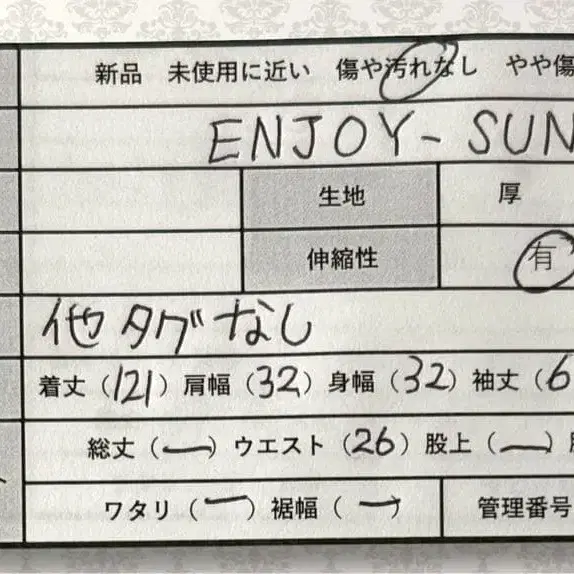 新品 未使用に近い 傷や汚れなし やや傷
ENJOY - SUN
生地 厚
伸縮性 有
他タグなし
着丈(121) 肩幅(32) 身幅(32) 袖丈(6
総丈(ー) ウエスト(26) 股上(ー)
ワタリ(ー) 裾幅(ー) 管理番号